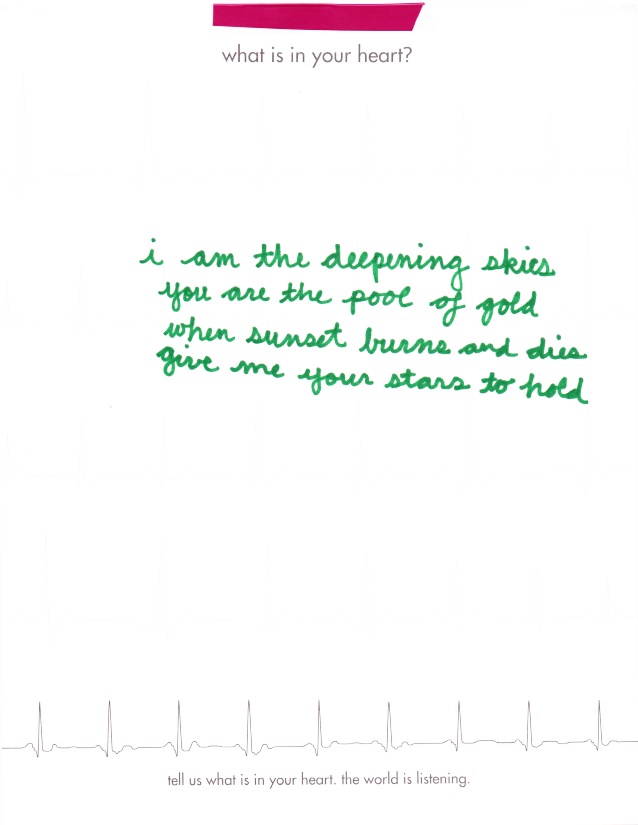 what is in your heart?
i am the deepening skies
you are the pool of gold
when sunset burns and dies
give me your stars to hold
tell us what is in your heart. the world is listening.